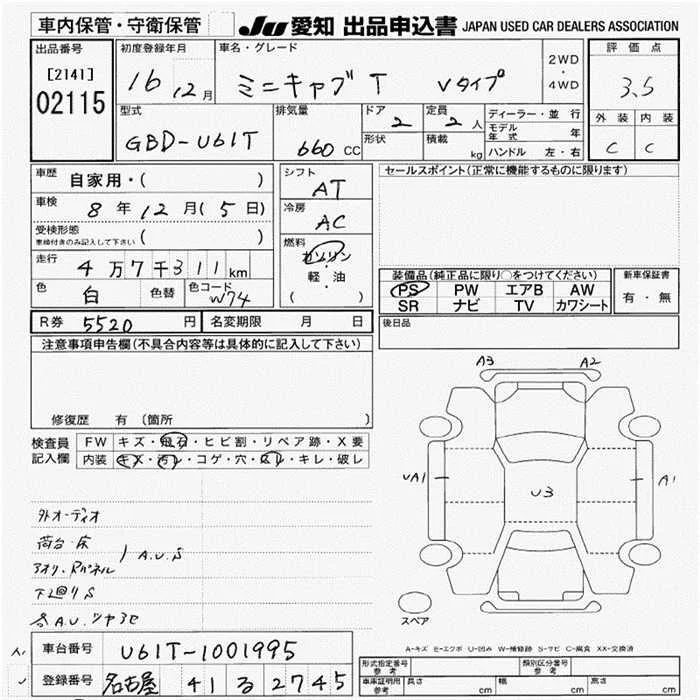 車内保管・守衛保管
JU 愛知 出品申込書 JAPAN USED CAR DEALERS ASSOCIATION
出品番号
[2141]
02115
初度登録年月
16 12月
車名・グレード
ミニキャブT Vタイプ
2WD
・
4WD
評価点
3.5
外装 内装
C C
型式
GBD-U61T
排気量
660 CC
ドア
2
定員
2人
形状
積載
kg
ディーラー・並行
モデル年式 年
ハンドル 左・右
車歴 自家用・( )
車検 8年12月(5日)
受検形態
車検付きのみ記入して下さい ( )
走行 4万7千311km
色 白 色替 色コード W74
シフト
AT
冷房
AC
燃料
ガソリン
・
軽・油
( )
セールスポイント(正常に機能するものに限ります)
装備品(純正品に限り○をつけてください)
PS PW エアB AW
SR ナビ TV カワシート
新車保証書
有・無
R券 5520円 名変期限 月 日
後日品
注意事項申告欄(不具合内容等は具体的に記入して下さい)
修復歴 有 (箇所 )
検査員
記入欄
FW キズ・飛石・ヒビ割・リペア跡・X要
内装 キズ・汚レ・コゲ・穴・スレ・キレ・破レ
外オーディオ
荷台・床
アオリ・Rパネル
A.U.S
下廻りS
各A.U.ツヤヨセ
A3 A2
UA1 U3 A1
スペア
A-キズ E-エクボ U-凹み W-補修跡 S-サビ C-腐食 XX-交換済
A1
車台番号 U61T-1001995
登録番号 名古屋 41 る 2745
形式指定番号
参考
類別区分番号
参考
車庫証明用
参考
長さ cm
幅 cm
高さ cm